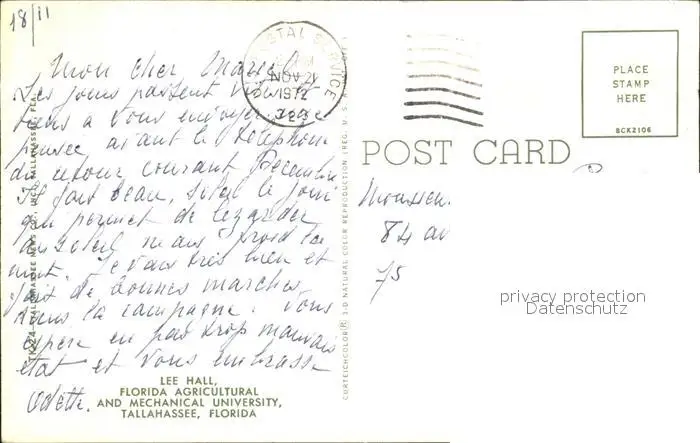 18/11
Mon cher Marcel
Les jours passent vite
tiens a vous envoyer une
pensée avant le téléphone
de retour courant Décembre
Il fait beau, soleil le jour
qui permet de lézarder
au soleil mais froid la
nuit. Je vais très bien et
fait de bonnes marches
dans la campagne. Vous
espère en pas trop mauvais
état et vous embrasse
Odette.
LEE HALL,
FLORIDA AGRICULTURAL
AND MECHANICAL UNIVERSITY,
TALLAHASSEE, FLORIDA
POSTAL SERVICE
NOV 21
1972
323
CURTEICHCOLOR® 3-D NATURAL COLOR REPRODUCTION (REG. U.S.A.
PLACE
STAMP
HERE
BCK2106
POST CARD
Monsieur
84 av
75
privacy protection
Datenschutz